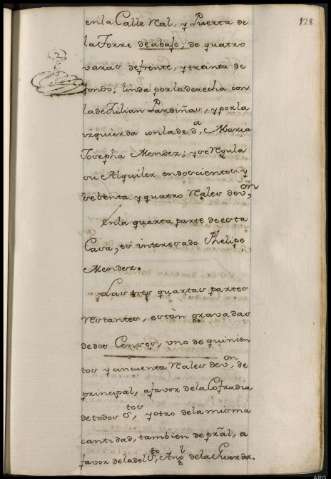 128
en la Calle Rˡ, y Puerta de
la Torre de abajo; de quatro
varas de frente, y treinta de
fondo; linda por la derecha con
la de Julian Pardiñas, y por la
izquierda con la de d.ª Maria
Josepha Mendez; y se Regula
su Alquiler en doscientos y
setenta y quatro Reales de vⁿ
En la quarta parte de esta
Casa, es interesado Phelipe
Mendez.
Las tres quartas partes
Restantes, están gravadas
de dos Censos, uno de quinien
tos y cincuenta Reales de vⁿ, de
principal, a favor de la Cofradia
de todos S.tos, y otro de la misma
cantidad, tambien de pral, a
favor de la del S.to Angˡ de la Guarda.